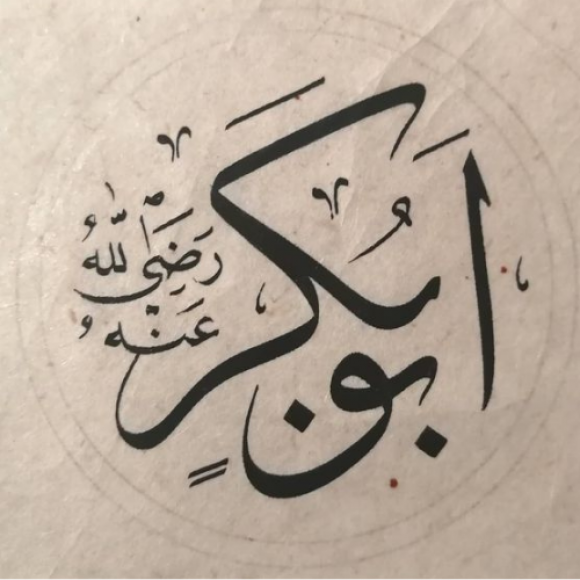 أَبُو بَكْرٍ
رَضِيَ اللّٰهُ عَنْهُ